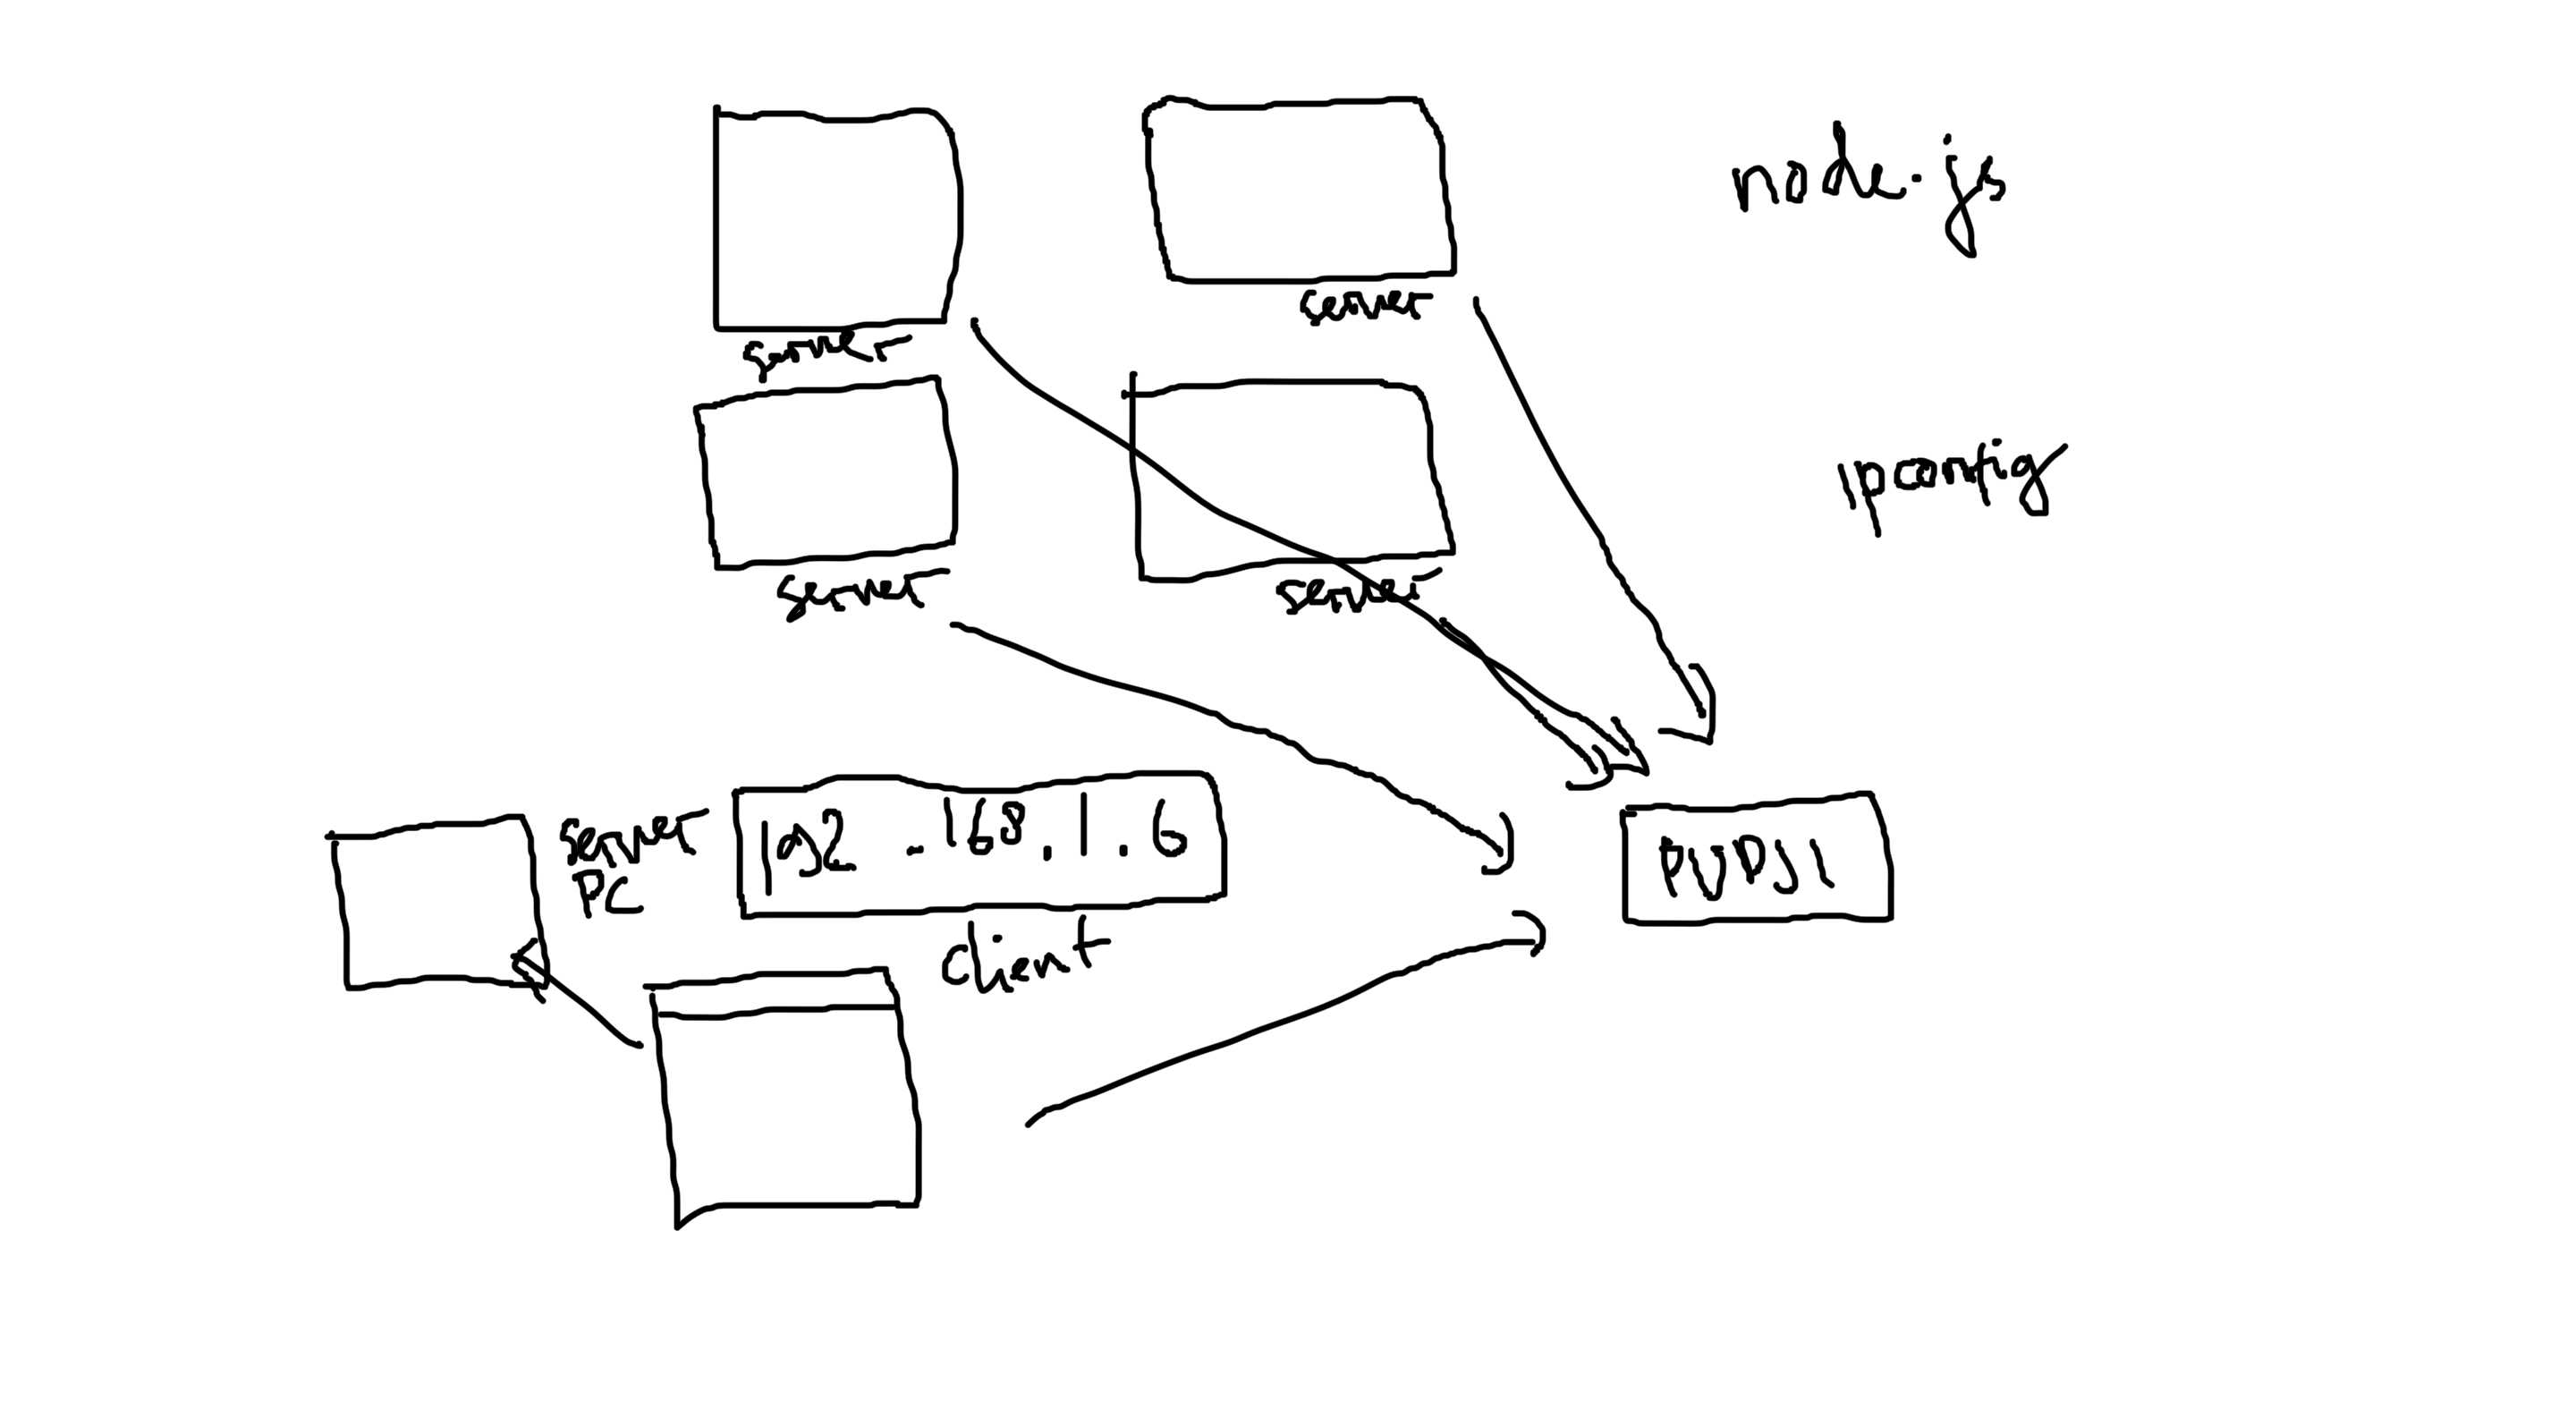 node.js
server
server
ipconfig
server
server
server
PC
192.168.1.6
client